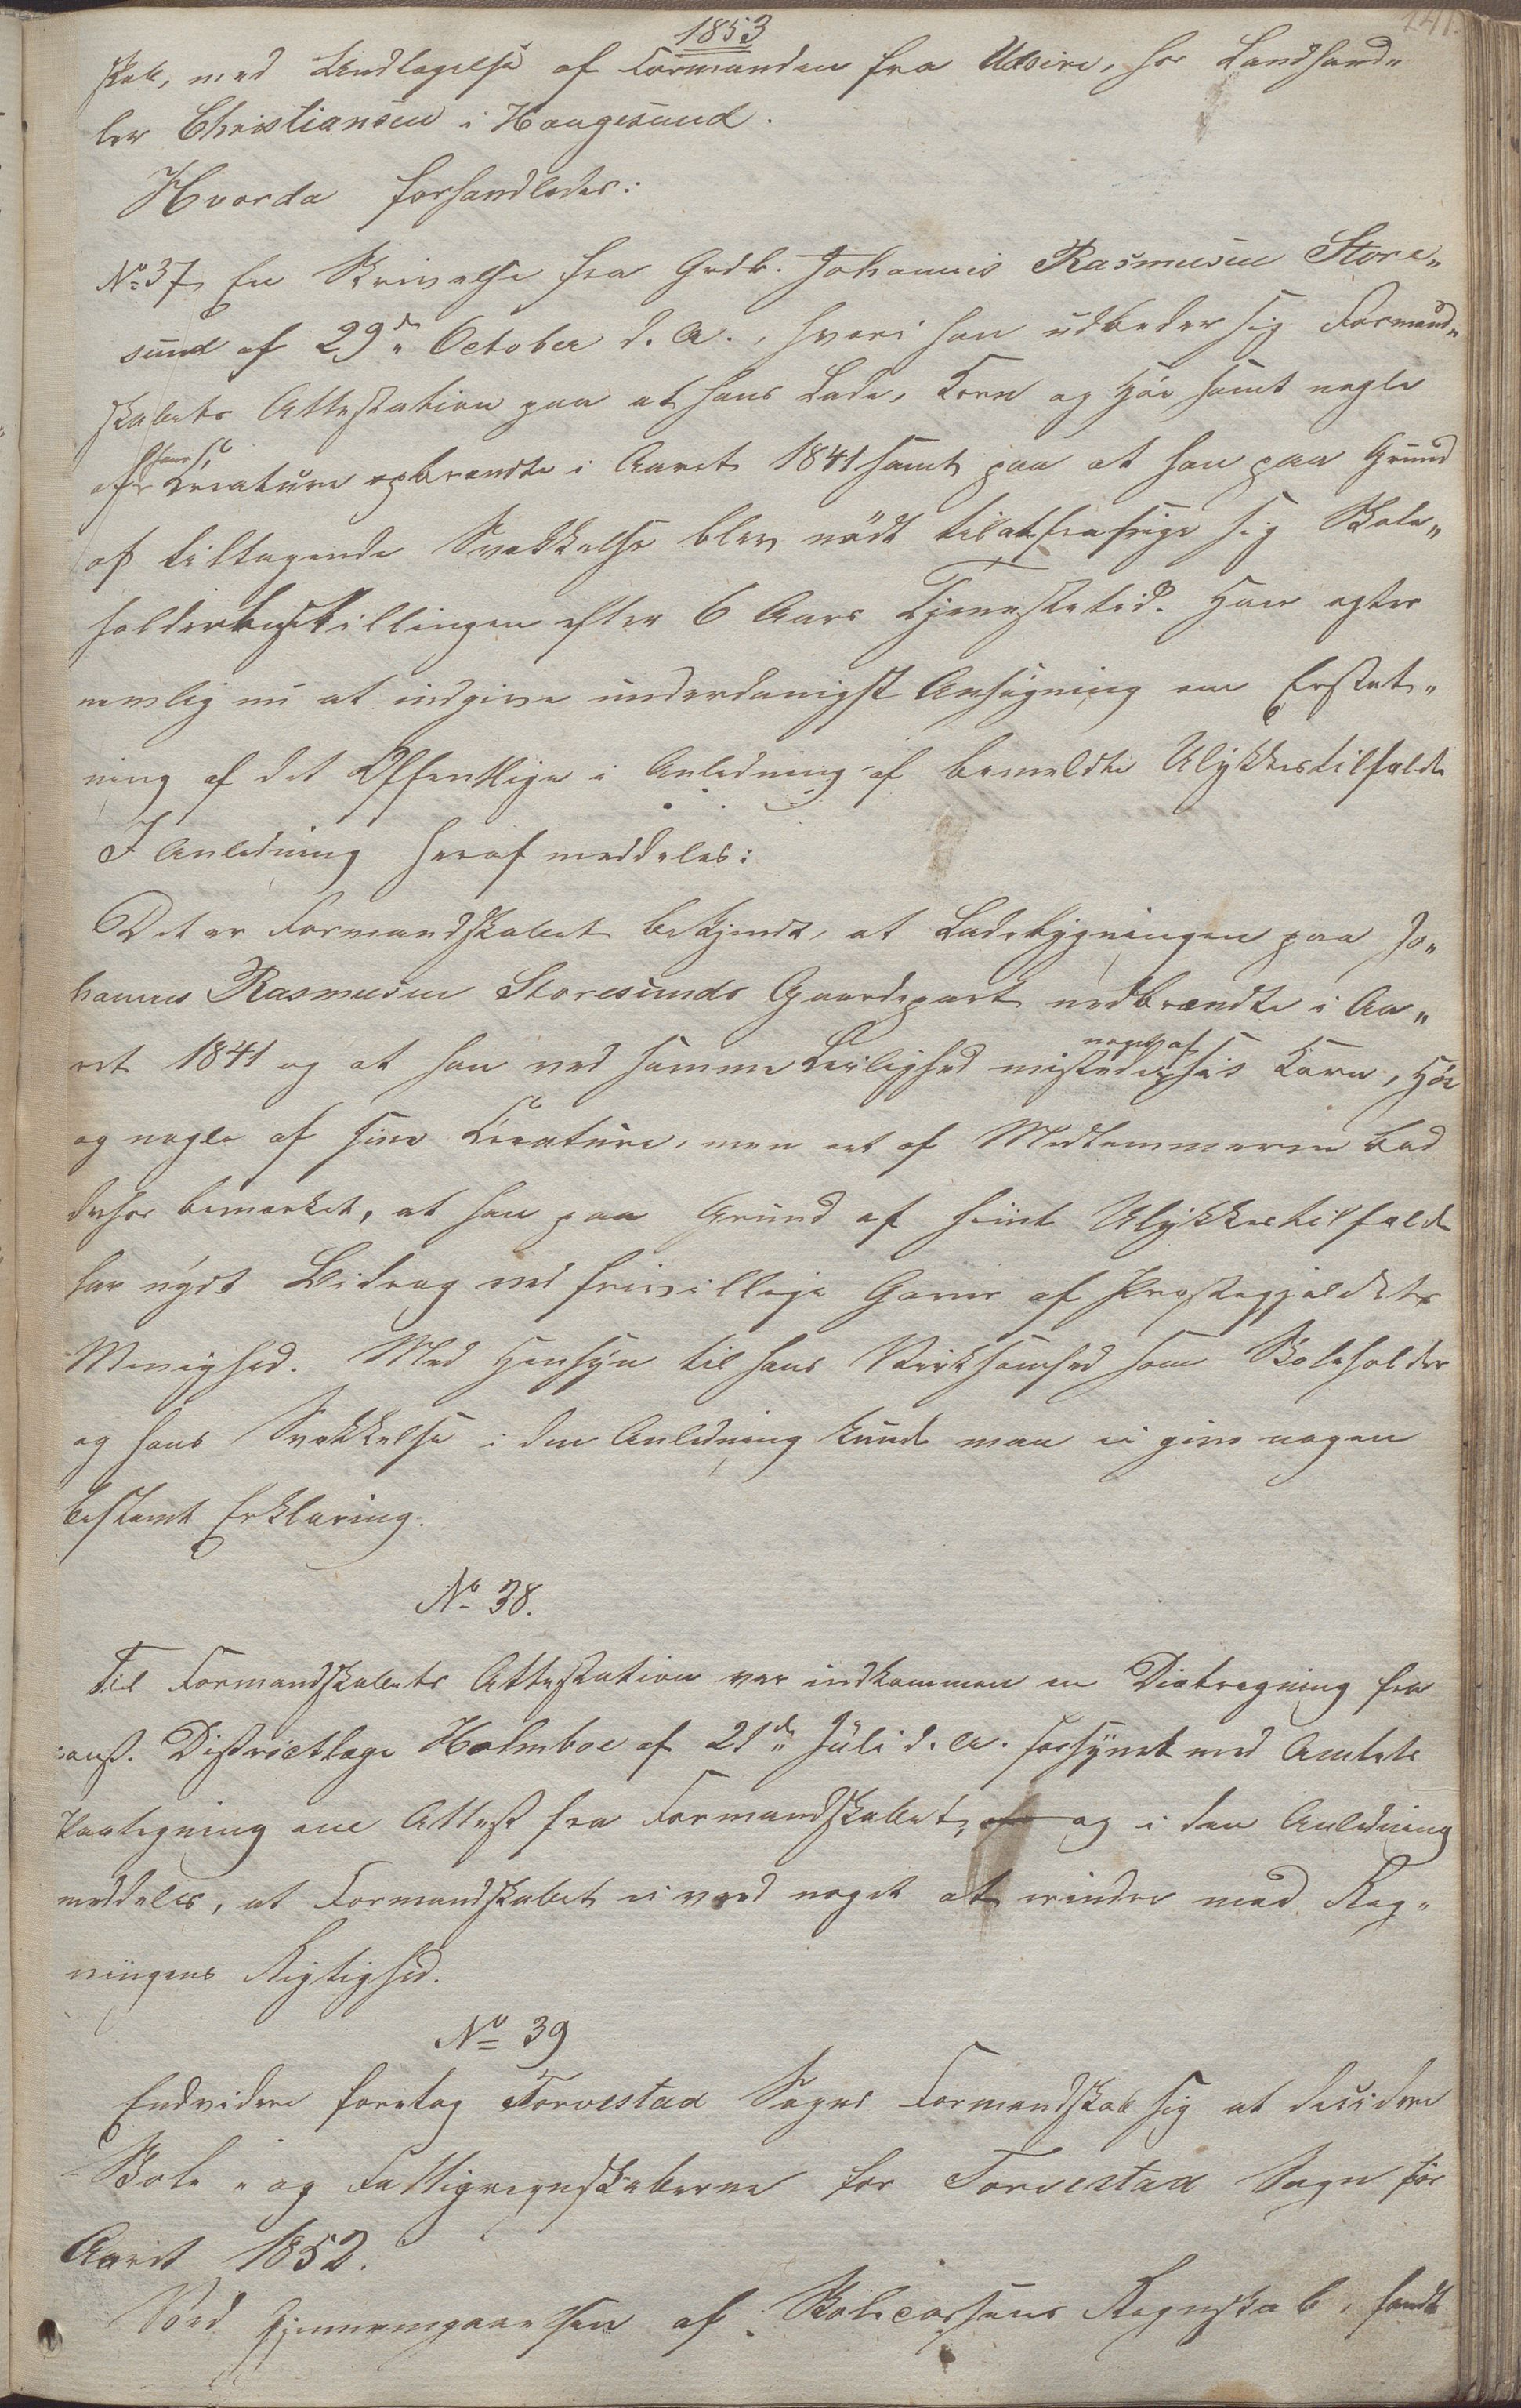 1853
141.
skab, med Undtagelse af Formanden fra Udsire, hos Landhand„
ler Christiansen i Haugesund.
Hvorda forhandledes:
No 37, En Skrivelse fra Grdb. Johannis Rasmusen Store„
sund af 29de October d. A., hvori han udbeder sig Formand„
skabets Attestation paa at hans Lade, Korn og Höe, samt nogle
af hans Creature opbrændte i Aaret 1841 samt paa at han paa Grund
af tiltagende Svækkelse blev nödt til at frasige sig Skole„
holderbestillingen efter 6 Aars Tjenestetid. Han agter
nemlig nu at indgive underdanigst Ansögning om Erstat„
ning af det Offentlige i Anledning af bemeldte Ulykkestilfælde
I Anledning heraf meddeles:
Det er Formandskabet bekjendt, at Ladebygningen paa Jo„
hannes Rasmusen Storesunds Gaardspart nedbrændte i Aa„
ret 1841 og at han ved samme Leilighed mistede noget af sit Korn, Höe
og nogle af sine Creature, men et af Medlemmerne bad
derhos bemærket, at han paa Grund af hiint Ulykkestilfælde
har nydt Bidrag ved frivillige Gaver af Præstegjeldets
Menighed. Med Hensyn til hans Virksomhed som Skoleholder
og hans Svækkelse i den Anledning kunde man ei give nogen
bestemt Erklæring.
No 38.
Til Formandskabets Attestation var indkommen en Diætregning fra
const. Districtlæge Holmboe af 21de Juli d. A. forsynet med Amtets
Paategning om Attest fra Formandskabet, og i den Anledning
meddeles, at Formandskabet ei ved noget at erindre mod Reg„
ningens Rigtighed.
No 39
Endvidere foretog Torvestad Sogns Formandskab sig at decidere
Skole- og Fattigregnskaberne for Torvestad Sogn for
Aaret 1852.
Ved Gjennemgaaelsen af Skolecassens Regnskab, fandt